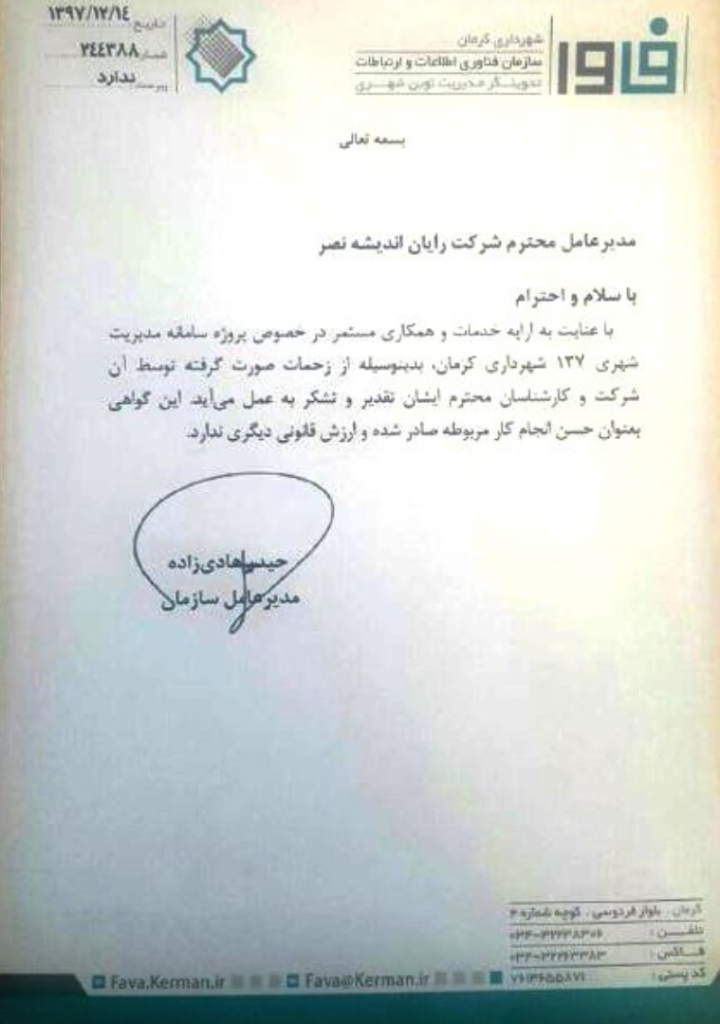 فاوا
شهرداری کرمان
سازمان فناوری اطلاعات و ارتباطات
تدوینگر مدیریت نوین شهری
تاریخ: ۱۳۹۷/۱۲/۱۴
شماره: ۲۴۴۳۸۸
پیوست: ندارد
بسمه تعالی
مدیرعامل محترم شرکت رایان اندیشه نصر
با سلام و احترام
با عنایت به ارایه خدمات و همکاری مستمر در خصوص پروژه سامانه مدیریت
شهری ۱۳۷ شهرداری کرمان، بدینوسیله از زحمات صورت گرفته توسط آن
شرکت و کارشناسان محترم ایشان تقدیر و تشکر به عمل می‌آید. این گواهی
بعنوان حسن انجام کار مربوطه صادر شده و ارزش قانونی دیگری ندارد.
حیدر هادی‌زاده
مدیرعامل سازمان
کرمان . بلوار فردوسی . کوچه شماره ۲
تلفن : ۰۳۴-۳۲۲۳۸۳۰۶
فاکس : ۰۳۴-۳۲۲۶۳۳۸۳
کد پستی : ۷۶۱۳۶۵۵۸۷۱
Fava@Kerman.ir
Fava.Kerman.ir